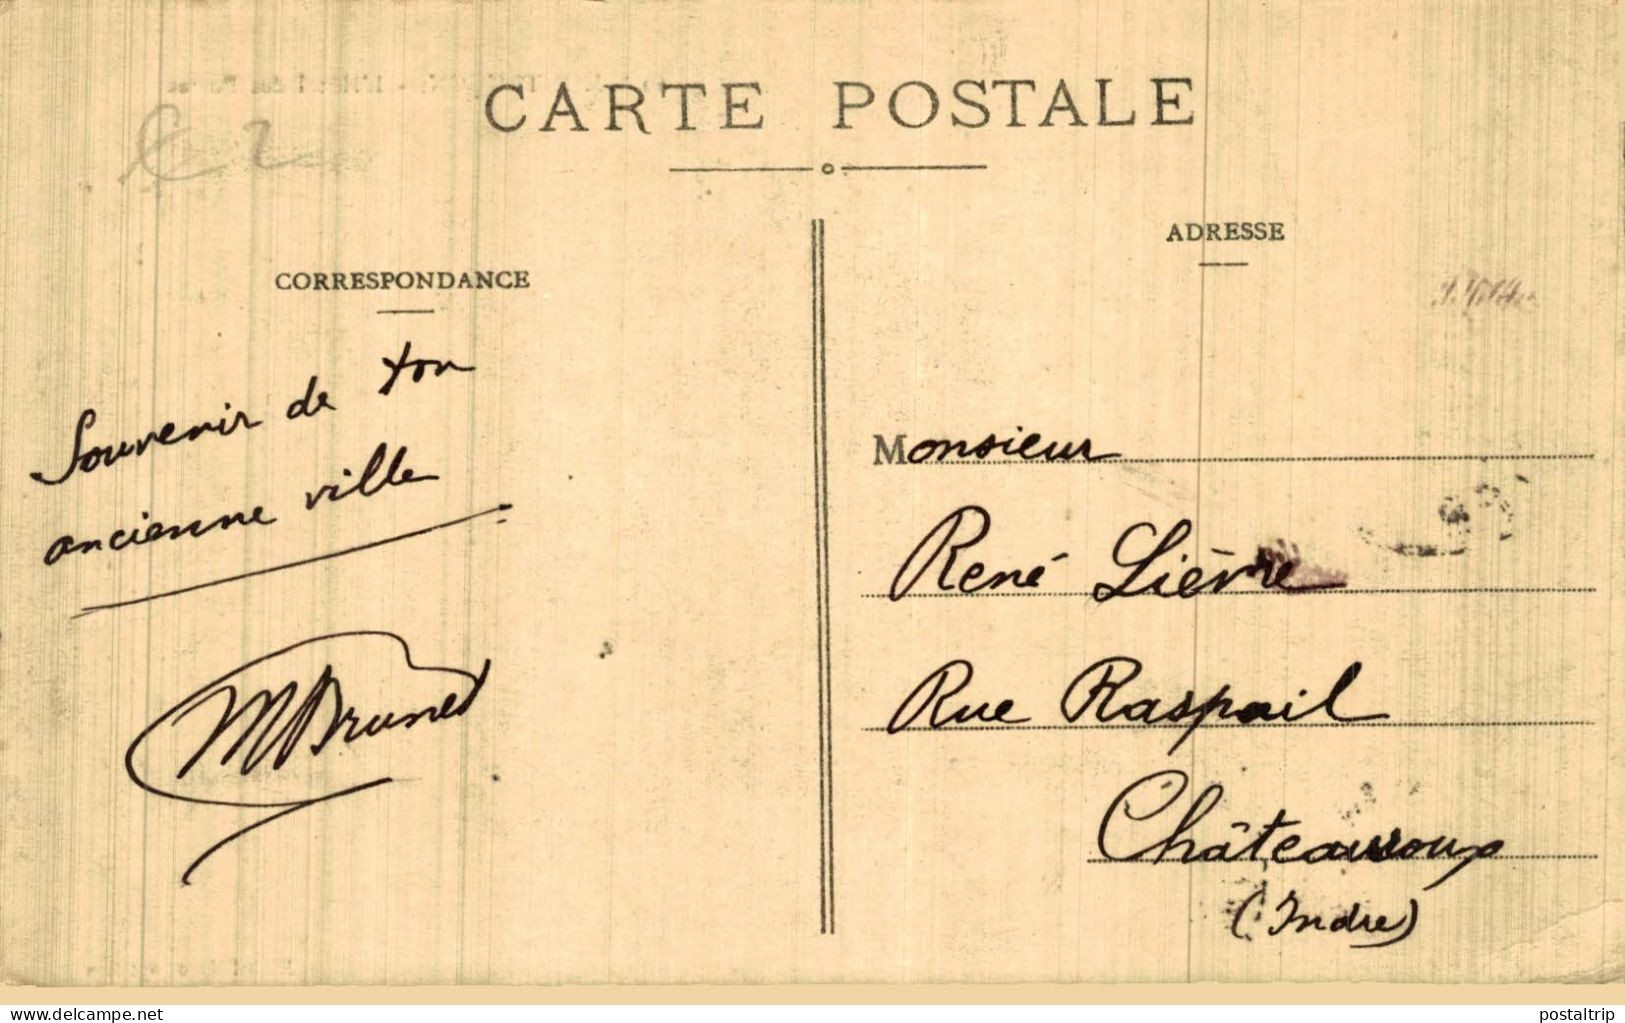 CARTE POSTALE
CORRESPONDANCE
Souvenir de ton
ancienne ville
MBrunet
ADRESSE
Monsieur
René Lièvre
Rue Raspail
Châteauroux
(Indre)
www.delcampe.net
postaltrip